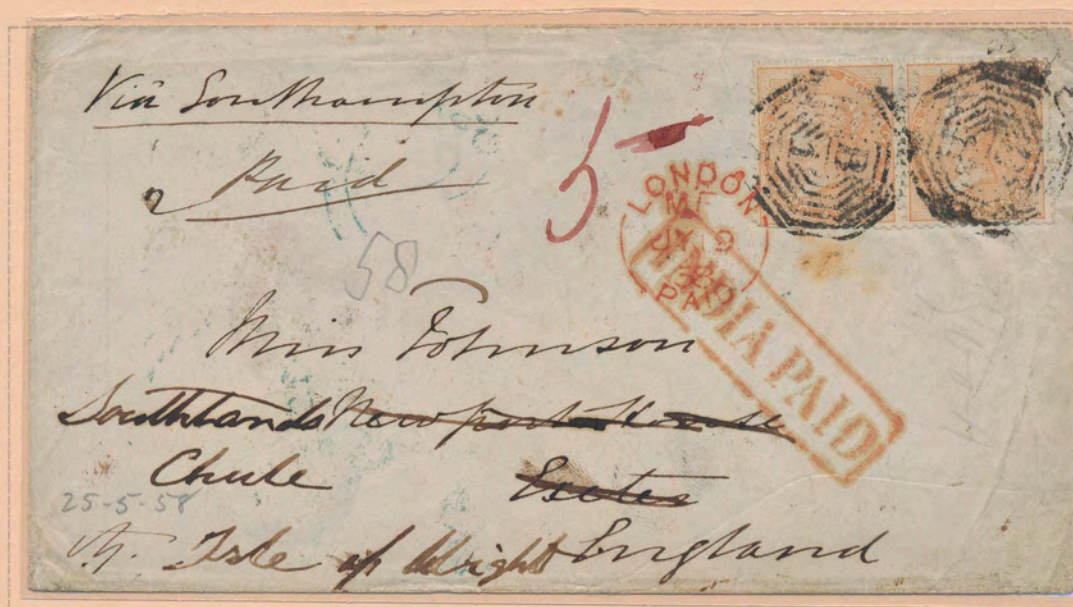 Via Southampton
Paid
5
LONDON
9
PA
B
1
INDIA PAID
58
Miss Johnson
Southlands Newport House
Chale
Exeter
25-5-58
Isle of Wight England